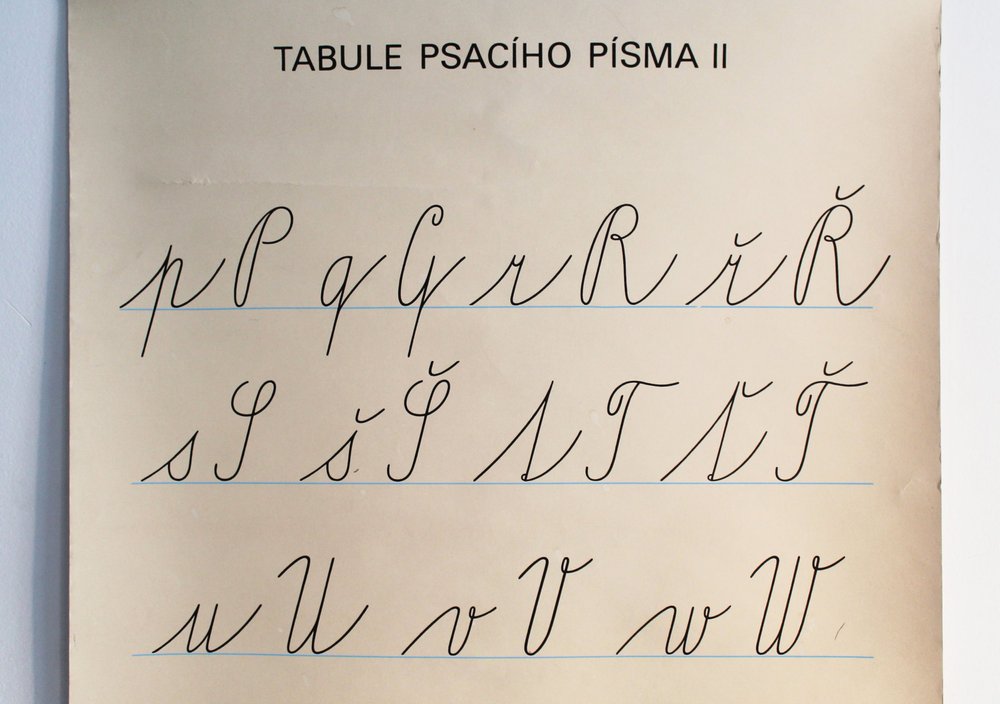 TABULE PSACÍHO PÍSMA II
p P q Q r R ř Ř
s S š Š t T ť Ť
u U v V w W